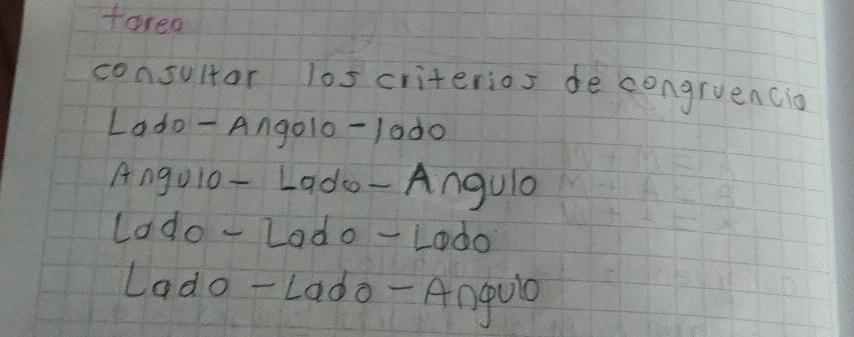 tarea
consultar los criterios de congruencia
Lado - Angolo - lado
Angulo - Lado - Angulo
Lado - Lado - Lado
Lado - Lado - Angulo